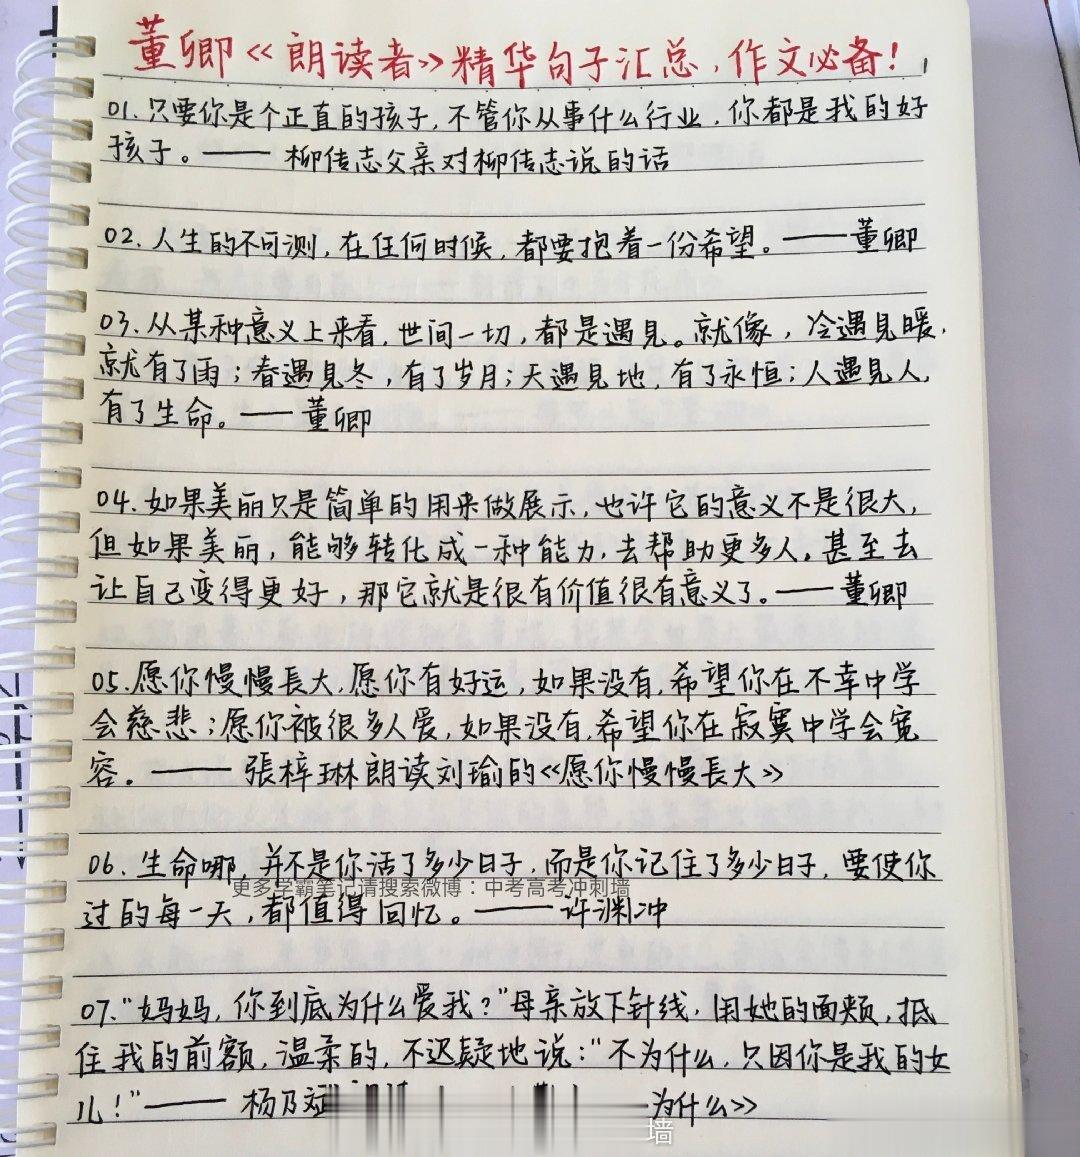 董卿《朗读者》精华句子汇总,作文必备!
01.只要你是个正直的孩子,不管你从事什么行业,你都是我的好
孩子。——柳传志父亲对柳传志说的话
02.人生的不可测,在任何时候,都要抱着一份希望。——董卿
03.从某种意义上来看,世间一切,都是遇见。就像,冷遇見暖,
就有了雨;春遇見冬,有了岁月;天遇見地,有了永恒;人遇見人,
有了生命。——董卿
04.如果美丽只是简单的用来做展示,也许它的意义不是很大,
但如果美丽,能够转化成一种能力,去帮助更多人。甚至去
让自己变得更好,那它就是很有价值很有意义了。——董卿
05.愿你慢慢長大,愿你有好运,如果没有,希望你在不幸中学
会慈悲;愿你被很多人爱,如果没有,希望你在寂寞中学会宽
容。——張梓琳朗读刘瑜的《愿你慢慢長大》
06.生命哪,并不是你活了多少日子,而是你记住了多少日子,要使你
更多学霸笔记请搜索微博:中考高考冲刺墙
过的每一天,都值得回忆。——许渊冲
07."妈妈,你到底为什么爱我?"母亲放下针线,用她的面颊,抵
住我的前额,温柔的,不迟疑地说:"不为什么,只因你是我的女
儿!"——杨乃斌
为什么》
墙